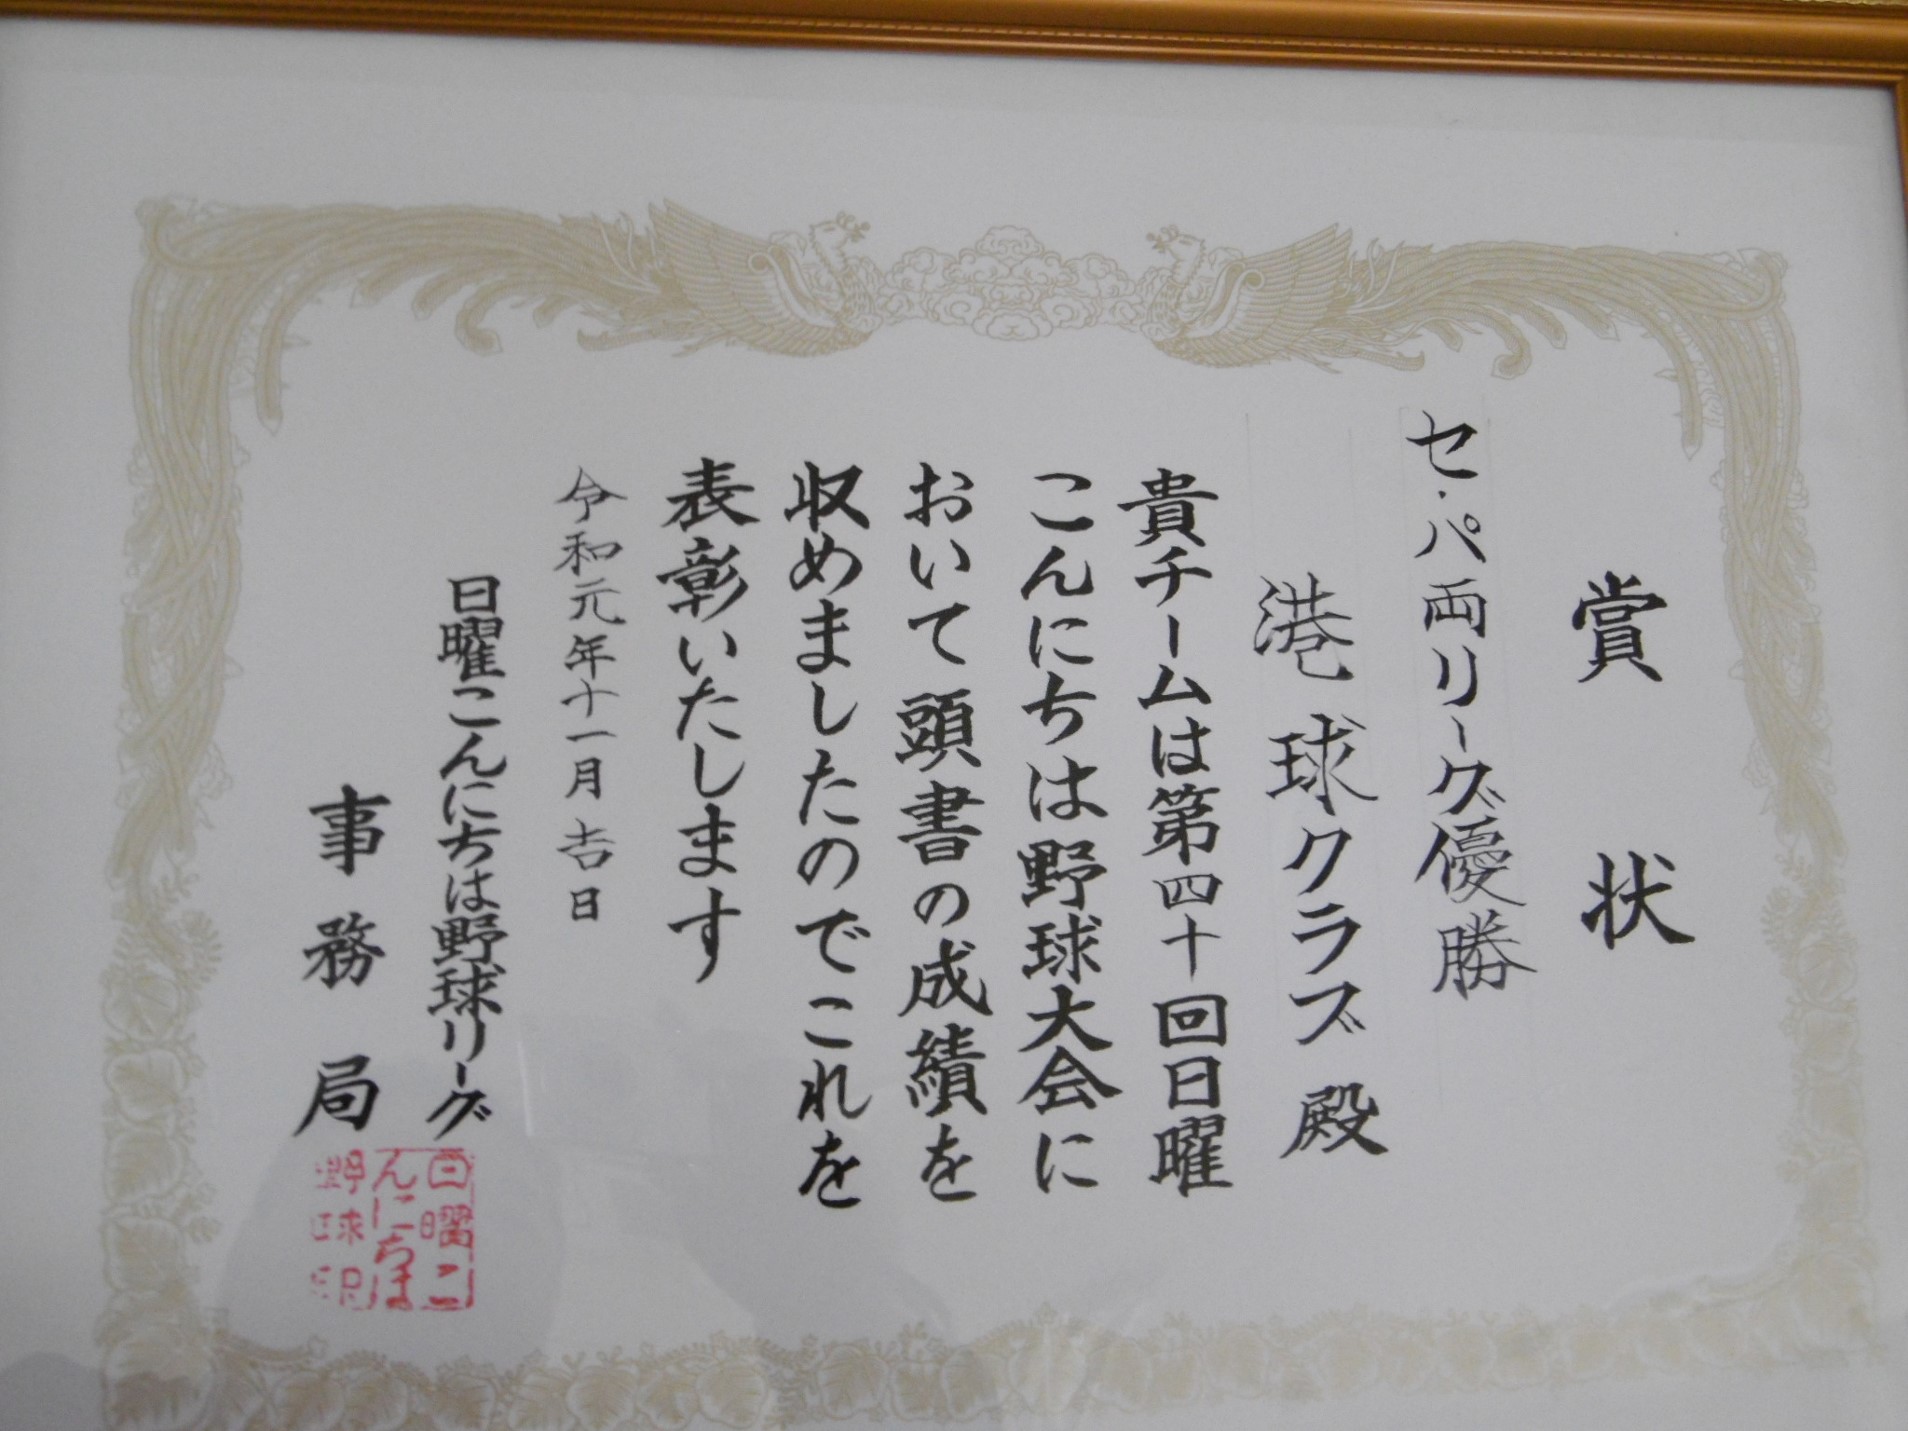 賞状
セ・パ両リーグ優勝
港球クラブ殿
貴チームは第四十回日曜
こんにちは野球大会に
おいて頭書の成績を
収めましたのでこれを
表彰いたします
令和元年十一月吉日
日曜こんにちは野球リーグ
事務局
日曜こ
んにちは